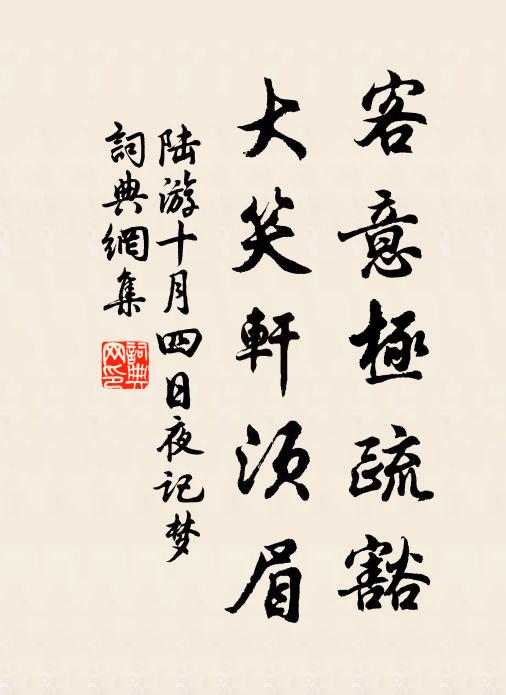 客意極疏豁
大笑軒須眉
陆游十月四日夜记梦
詞典網集
詞典网印